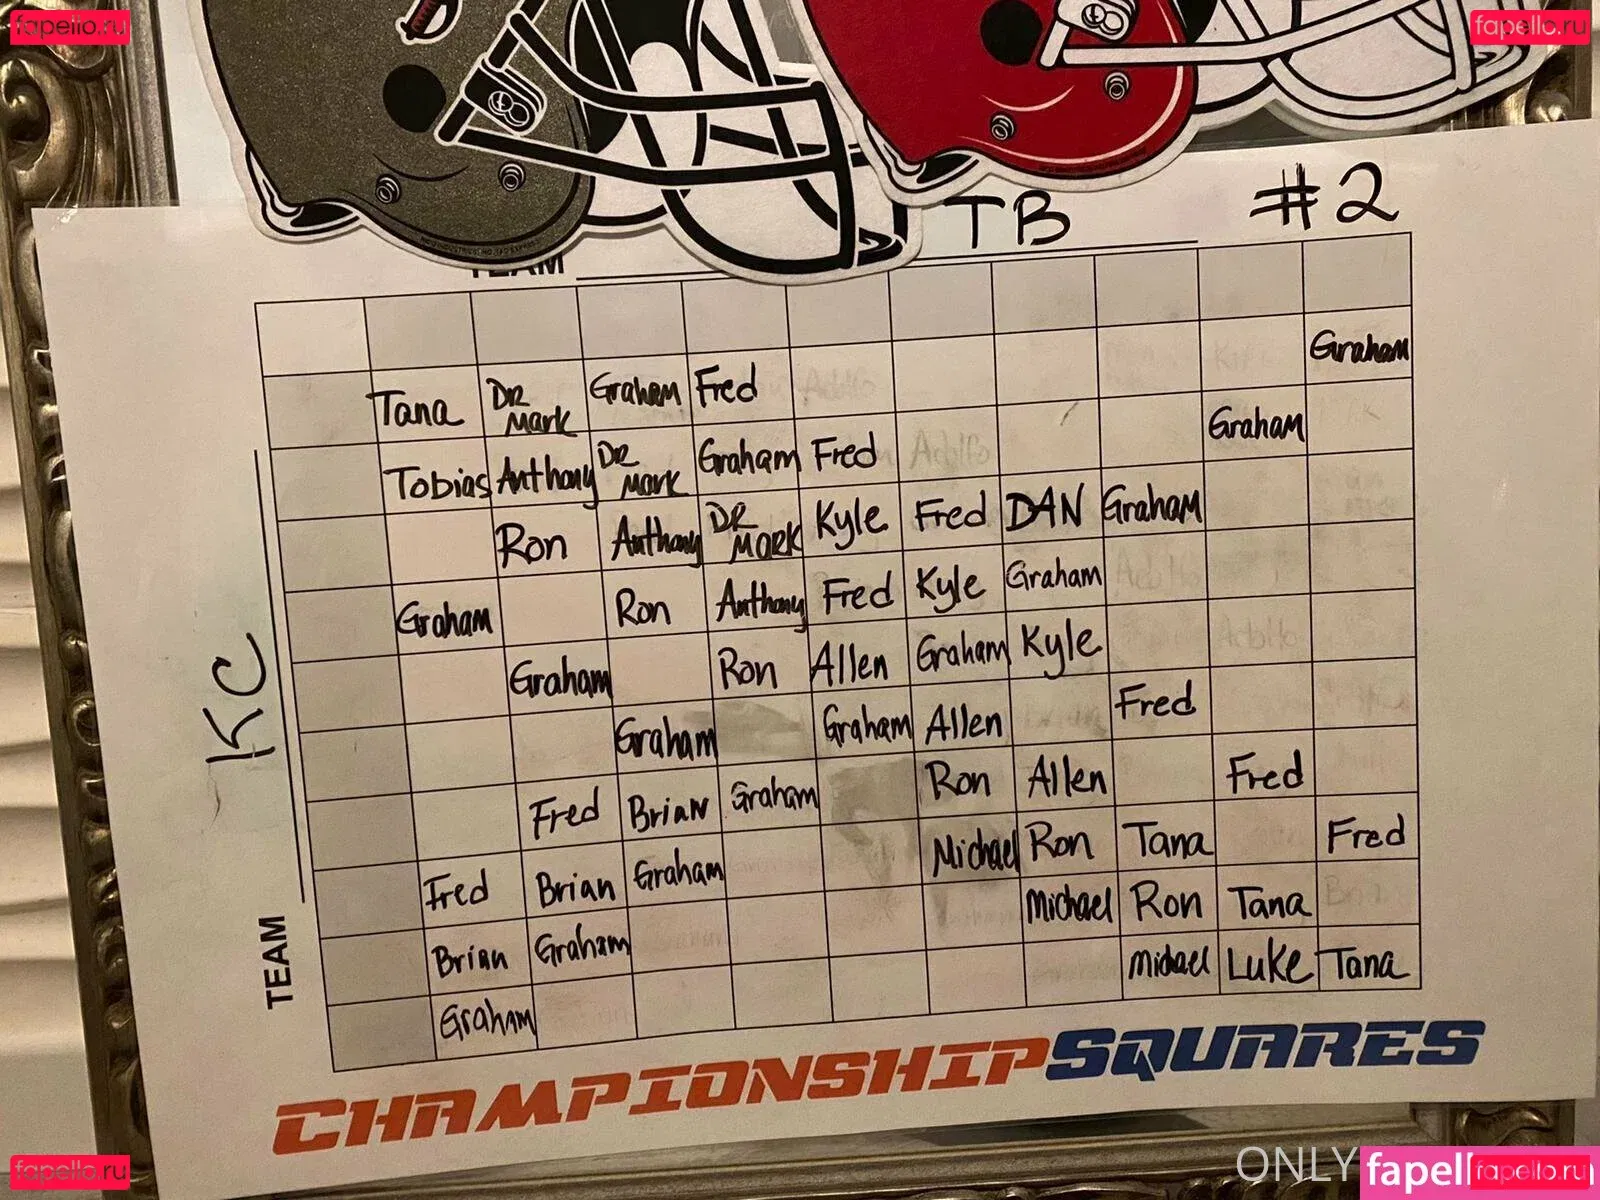 fapello.ru
fapello.ru
TB #2
TEAM
Graham
Tana DR MARK Graham Fred
Graham
Tobias Anthony DR MARK Graham Fred
Ron Anthony DR MARK Kyle Fred DAN Graham
Graham Ron Anthony Fred Kyle Graham
Graham Ron Allen Graham Kyle
Graham Graham Allen Fred
Fred Brian Graham Ron Allen Fred
Fred Brian Graham Michael Ron Tana Fred
Brian Graham Michael Ron Tana
Graham Michael Luke Tana
KC
TEAM
CHAMPIONSHIP SQUARES
fapello.ru
ONLY
fapello.ru